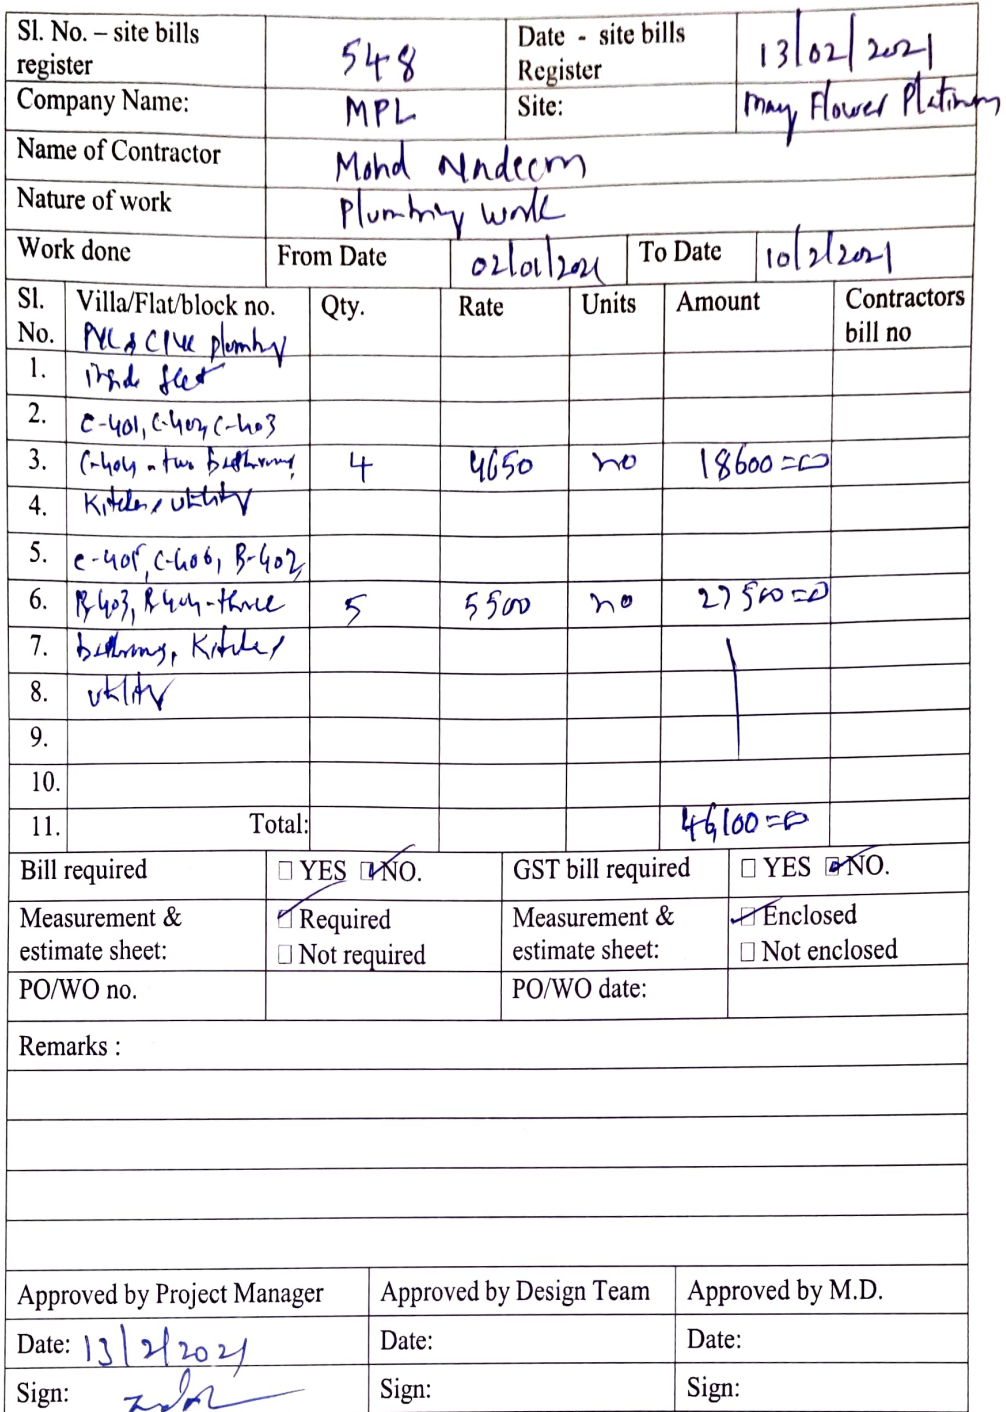 Sl. No. – site bills register 548 Date - site bills Register 13/02/2021
Company Name: MPL Site: May Flower Platinum
Name of Contractor Mohd Nadeem
Nature of work Plumbing work
Work done From Date 02/01/2021 To Date 10/2/2021
Sl. No. Villa/Flat/block no. Qty. Rate Units Amount Contractors bill no
PVC & CPVC plumbing
1. inside flat
2. C-401, C-402, C-403
3. C-404 - two bathrooms, 4 4650 no 18600=00
4. Kitchen, utility
5. C-405, C-406, B-402,
6. B-403, B-404-three 5 5500 no 27500=00
7. bathrooms, Kitchen,
8. utility
9.
10.
11. Total: 46,100=00
Bill required ☐ YES ☑ NO. GST bill required ☐ YES ☑ NO.
Measurement & estimate sheet: ☑ Required ☐ Not required Measurement & estimate sheet: ☑ Enclosed ☐ Not enclosed
PO/WO no. PO/WO date:
Remarks :
Approved by Project Manager Approved by Design Team Approved by M.D.
Date: 13/2/2021 Date: Date:
Sign: Sign: Sign: